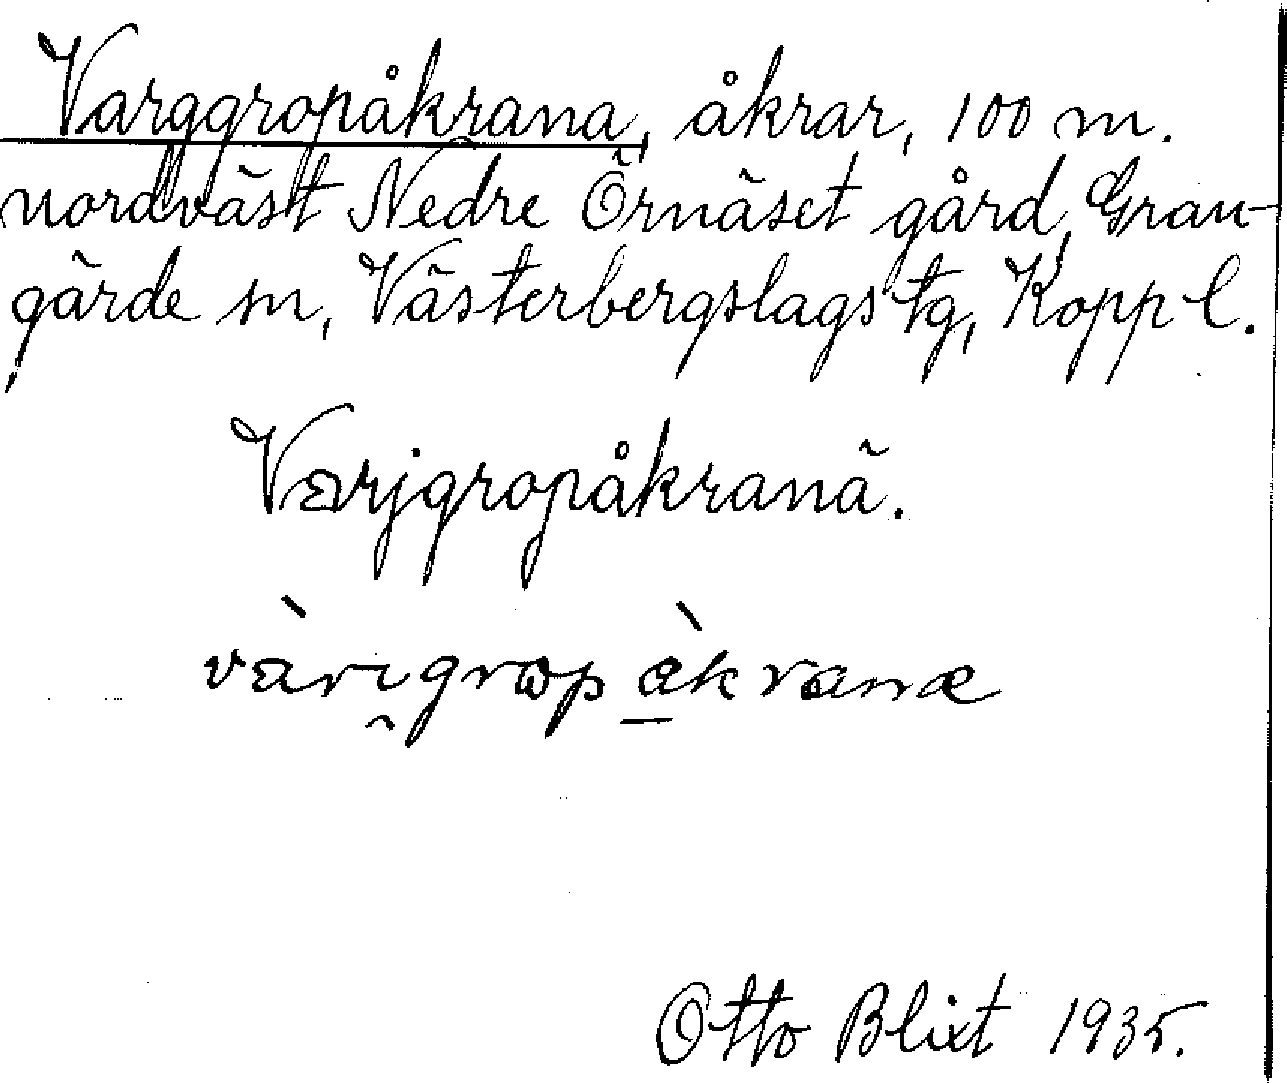 Varggropåkrana, åkrar, 100 m.
nordväst Nedre Örnäset gård, Gran-
gärde sn, Västerbergslags tg, Kopp l.
Varjgropåkranä.
vàrı̯grωp å̠̀kranæ
Otto Blixt 1935.